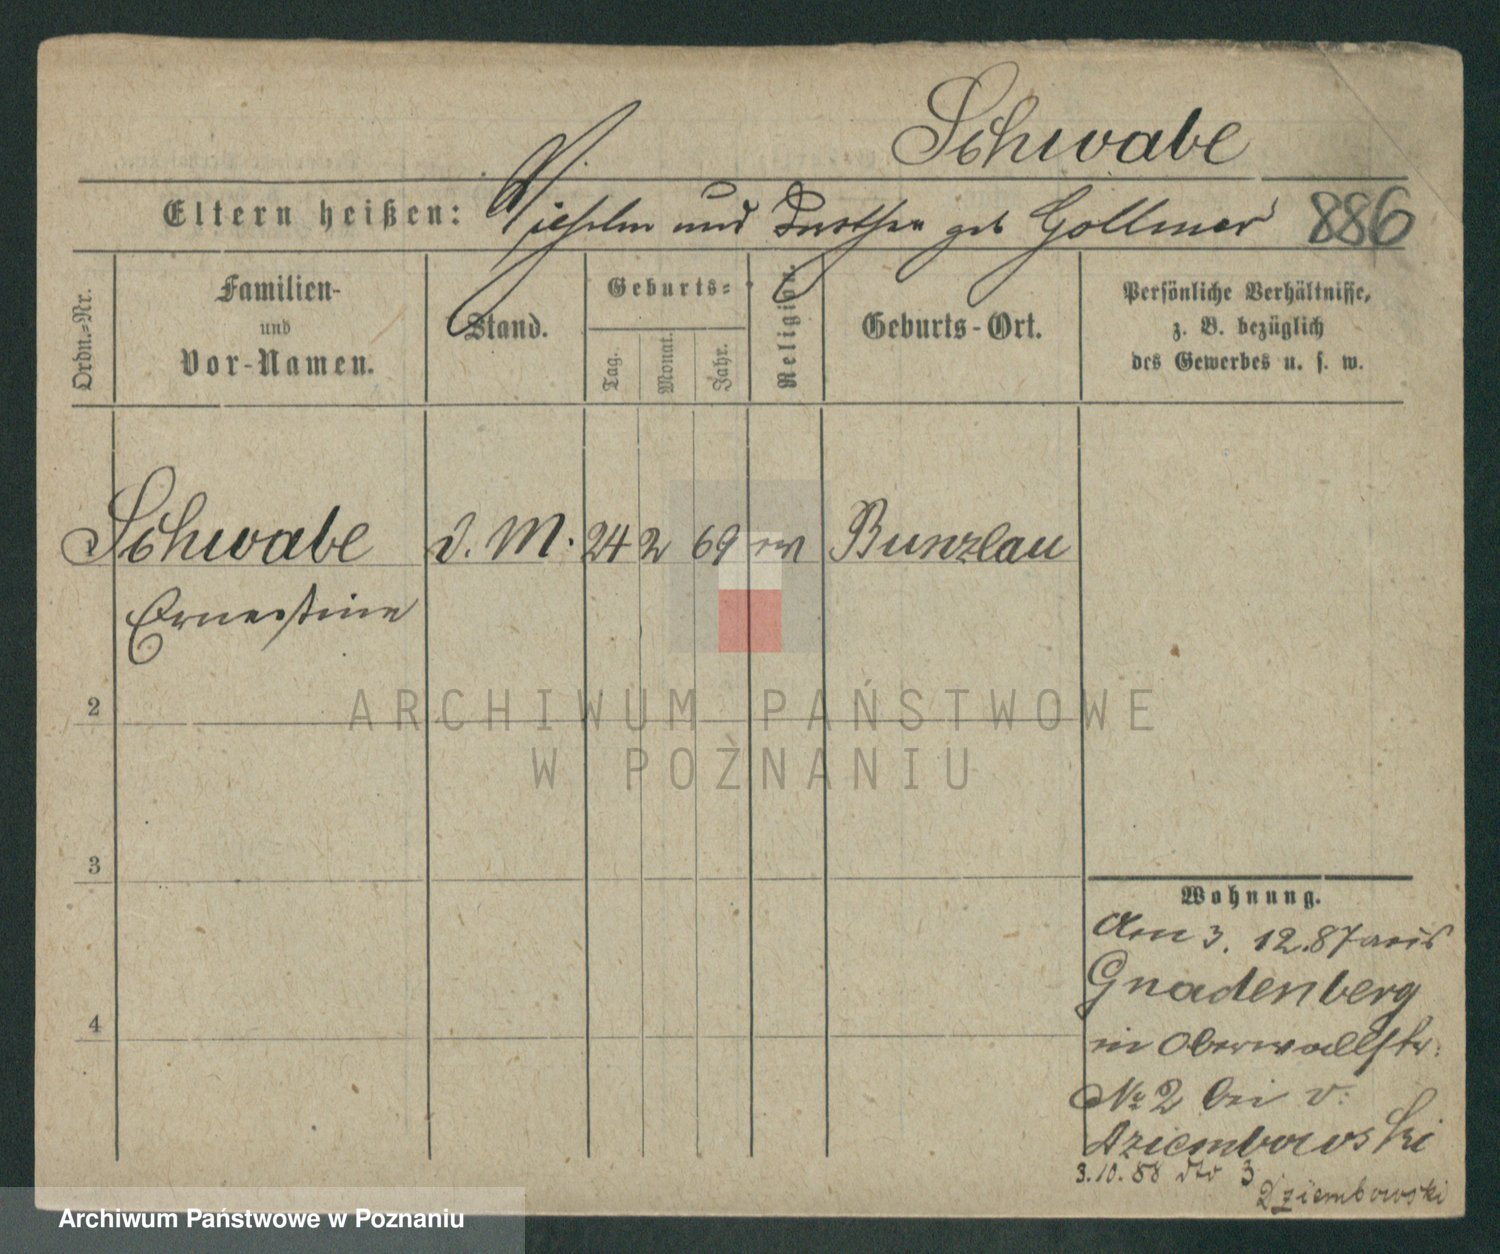 Schwabe
Eltern heißen: Wilhelm und Dorothea geb Gollmer 886
Ordn.=Nr.
Familien-
und
Vor-Namen.
Stand.
Geburts=
Tag.
Monat.
Jahr.
Religion.
Geburts-Ort.
Persönliche Verhältnisse,
z. B. bezüglich
des Gewerbes u. s. w.
Schwabe D. M. 24 2 69 ev Bunzlau
Ernestine
2
3
4
Wohnung.
Am 3. 12. 87 aus
Gnadenberg
in Oberwallstr.
No 2 bei v.
Dziembowski
3.10.88 dto 3
Dziembowski
ARCHIWUM PAŃSTWOWE
W POZNANIU
Archiwum Państwowe w Poznaniu